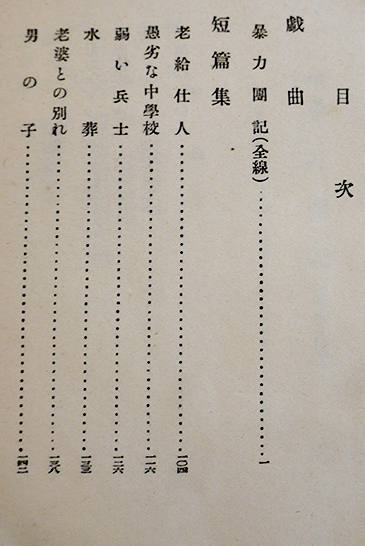 目次
戯曲
暴力團記(全線)……………………一
短篇集
老給仕人……………………一〇四
愚劣な中學校……………………一一六
弱い兵士……………………一二六
水葬……………………一三三
老婆との別れ……………………一三八
男の子……………………一四二